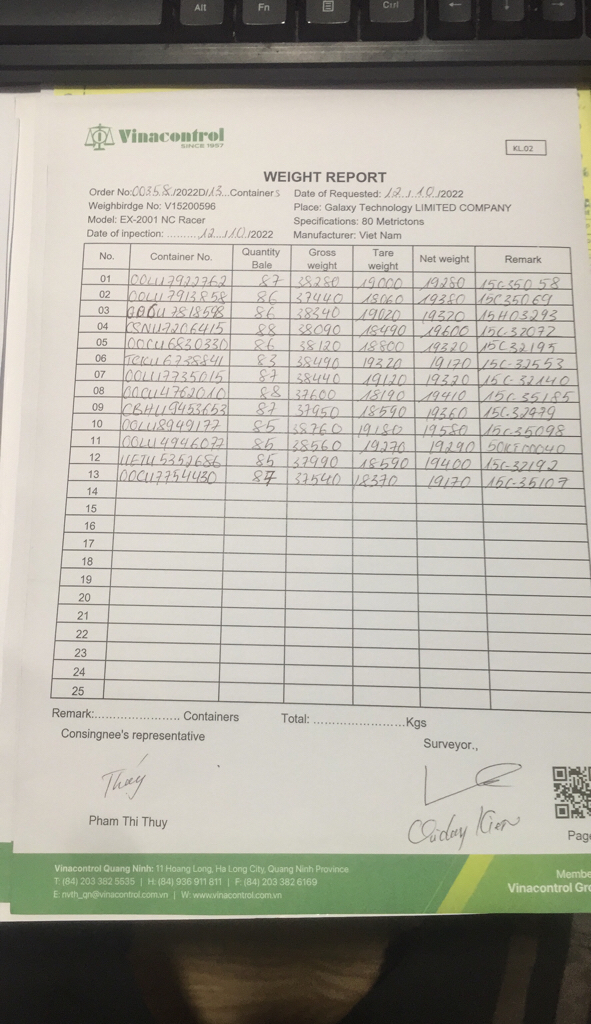 Alt Fn Ctrl
Vinacontrol
SINCE 1957
KL.02
WEIGHT REPORT
Order No:00358/2022D/13...Containers Date of Requested: 12../.10./2022
Weighbirdge No: V15200596 Place: Galaxy Technology LIMITED COMPANY
Model: EX-2001 NC Racer Specifications: 80 Metrictons
Date of inpection: .........12../10/2022 Manufacturer: Viet Nam
No. Container No. Quantity Bale Gross weight Tare weight Net weight Remark
01 OOLU7922762 87 38280 19000 19280 15C-350 58
02 OOLU7913858 86 37440 18060 19380 15C35069
03 7818598 86 38340 19020 19320 15H03293
04 CSNU7206415 88 38090 18490 19600 15C-32077
05 OOCU6830330 86 38120 18800 19320 15C32195
06 TCKU6738841 83 38490 19320 19170 15C-32553
07 OOLU7735015 87 38440 19120 19320 15C-32140
08 OOCU4762010 88 37600 18190 19410 15C-35185
09 CBHU9453653 87 37950 18590 19360 15C-32979
10 OOLU8949177 85 38760 19180 19580 15C-35098
11 OOLU4946077 85 38560 19270 19290
12 UETU5352686 85 37990 18590 19400 15C-32192
13 OOCU7754430 87 37540 18370 19170 15C-35107
14
15
16
17
18
19
20
21
22
23
24
25
Remark:........................ Containers Total: ..........................Kgs
Consingnee's representative
Surveyor.,
Thúy
Pham Thi Thuy
Page
Vinacontrol Quang Ninh: 11 Hoang Long, Ha Long City, Quang Ninh Province
T: (84) 203 382 5535 | H: (84) 936 911 811 | F: (84) 203 382 6169
E: nvth_qn@vinacontrol.com.vn | W: www.vinacontrol.com.vn
Membe
Vinacontrol Gro